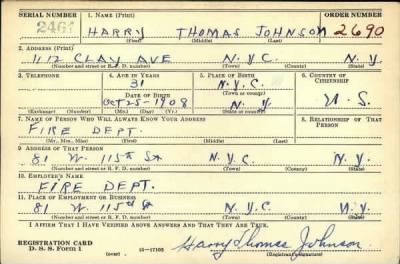 SERIAL NUMBER 1. Name (Print) ORDER NUMBER
246 HARRY THOMAS JOHNSON 2690
(First) (Middle) (Last)
2. Address (Print)
1112 CLAY AVE N.Y.C. N.Y.
(Number and street or R. F. D. number) (Town) (County) (State)
3. Telephone 4. Age in Years 5. Place of Birth 6. Country of Citizenship
31 N.Y.C.
Date of Birth (Town or county)
OCT 25 - 1908 N.Y. U.S.
(Exchange) (Number) (Mo.) (Day) (Yr.) (State or country)
7. Name of Person Who Will Always Know Your Address 8. Relationship of That Person
FIRE DEPT.
(Mr., Mrs., Miss) (First) (Middle) (Last)
9. Address of That Person
81 W. 115th St N.Y.C. N.Y.
(Number and street or R. F. D. number) (Town) (County) (State)
10. Employer's Name
FIRE DEPT.
11. Place of Employment or Business
81 W. 115th St N.Y.C. N.Y.
(Number and street or R. F. D. number) (Town) (County) (State)
I Affirm That I Have Verified Above Answers and That They Are True.
Registration Card
D. S. S. Form 1 (over) 16—17105 Harry Thomas Johnson
(Registrant's signature)